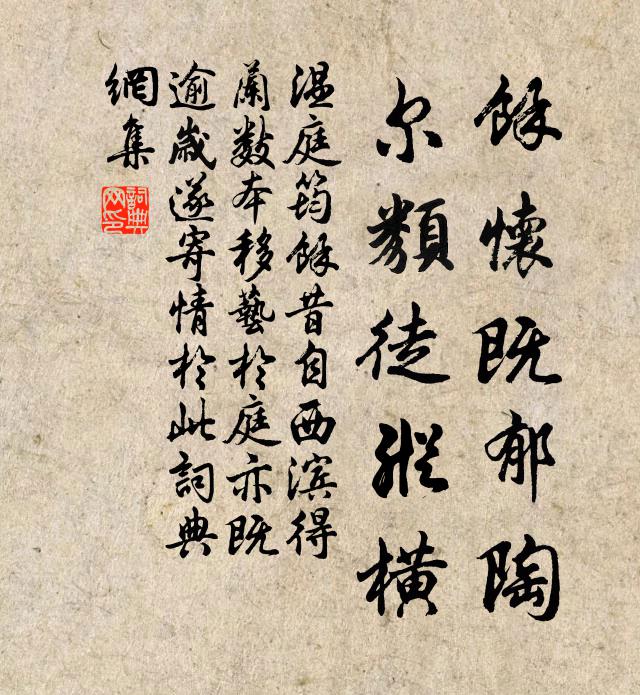 餘懷既郁陶
尔類徒縱橫
温庭筠餘昔自西滨得
蘭数本移藝於庭亦既
逾歲遂寄情於此詞典
網集
詞典網印